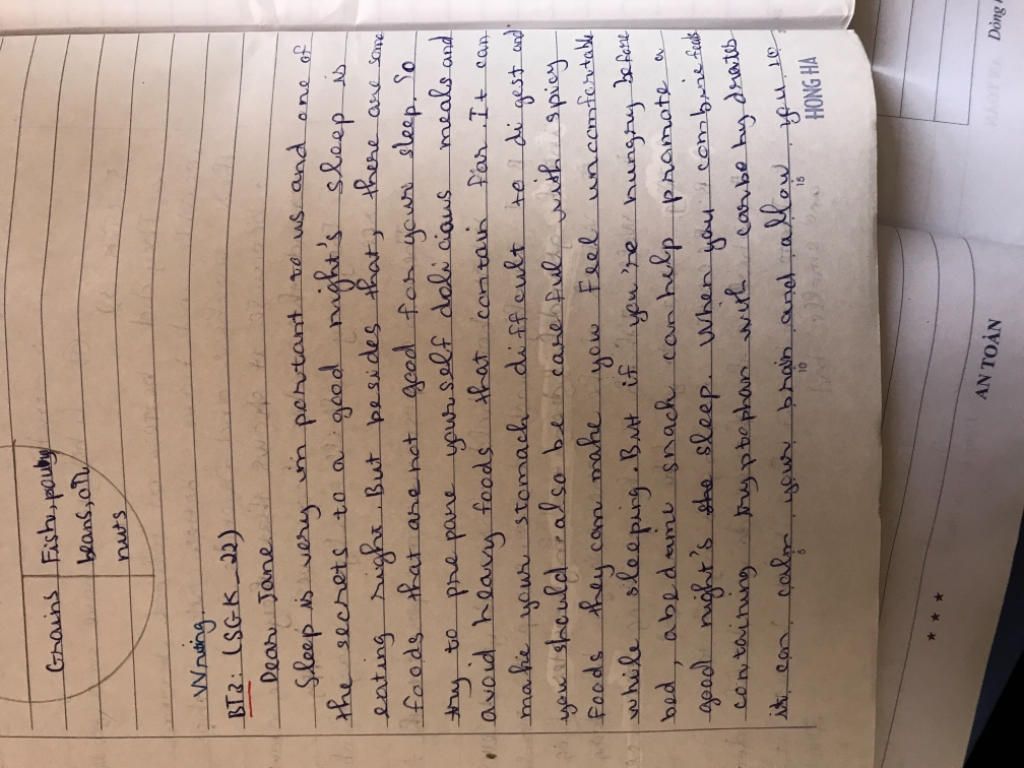 Grains
Fish, poultry
beans, and
nuts
Writing
BT2: (SGK_22)
Dear Jane
Sleep is very in portant to us and one of
the secrets to a good night's sleep is
eating right. But besides that, there are some
foods that are not good for your sleep. So
try to pre pare yourself deli caus meals and
avoid heavy foods that contain far. It can
make your stomach difficult to di gest and
you should also be careful with spicy
foods they can make you feel uncomfortable
while sleeping. But if you're hungry before
bed, a bedtime snack can help pramate a
good night's sleep. When you combine foods
containing tryptophan with carbohydrates
it can calm your brain and allow you to
5
10
15
HONG HA
AN TOÀN
Dòng